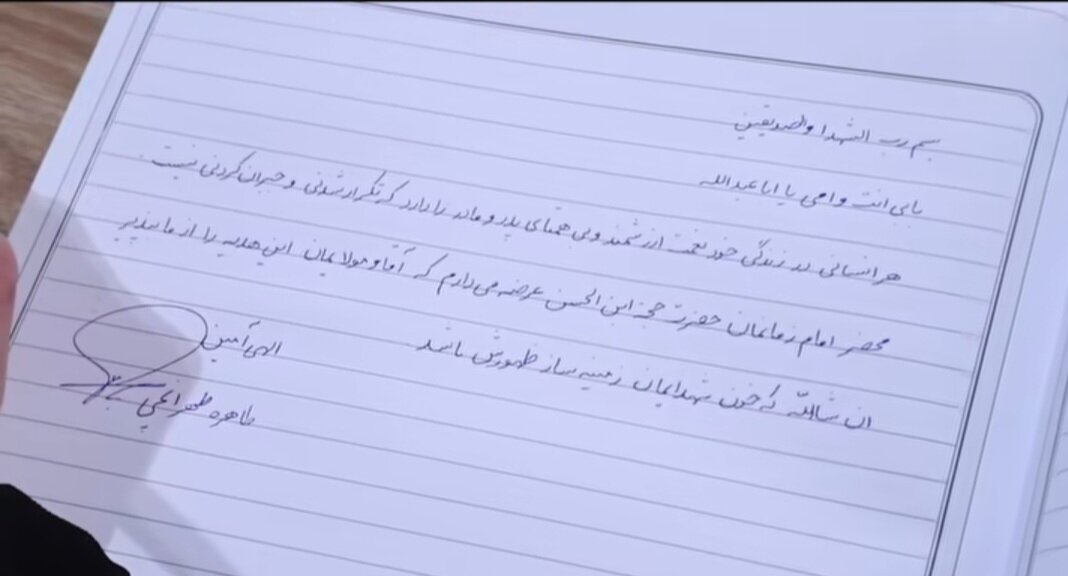 بسم رب الشهدا والصدیقین
بابی انت و امی یا اباعبدالله
هر انسانی در زندگی خود نعمت ارزشمند و بی همتای پدر و مادر را دارد که تکرار شدنی و جبران کردنی نیست.
محضر امام زمانمان حضرت حجة ابن الحسن عرضه می دارم که آقا و مولایمان این هدیه را از ما بپذیر
ان شاالله که خون شهدایمان زمینه ساز ظهورش باشد
الهی آمین
طاهره